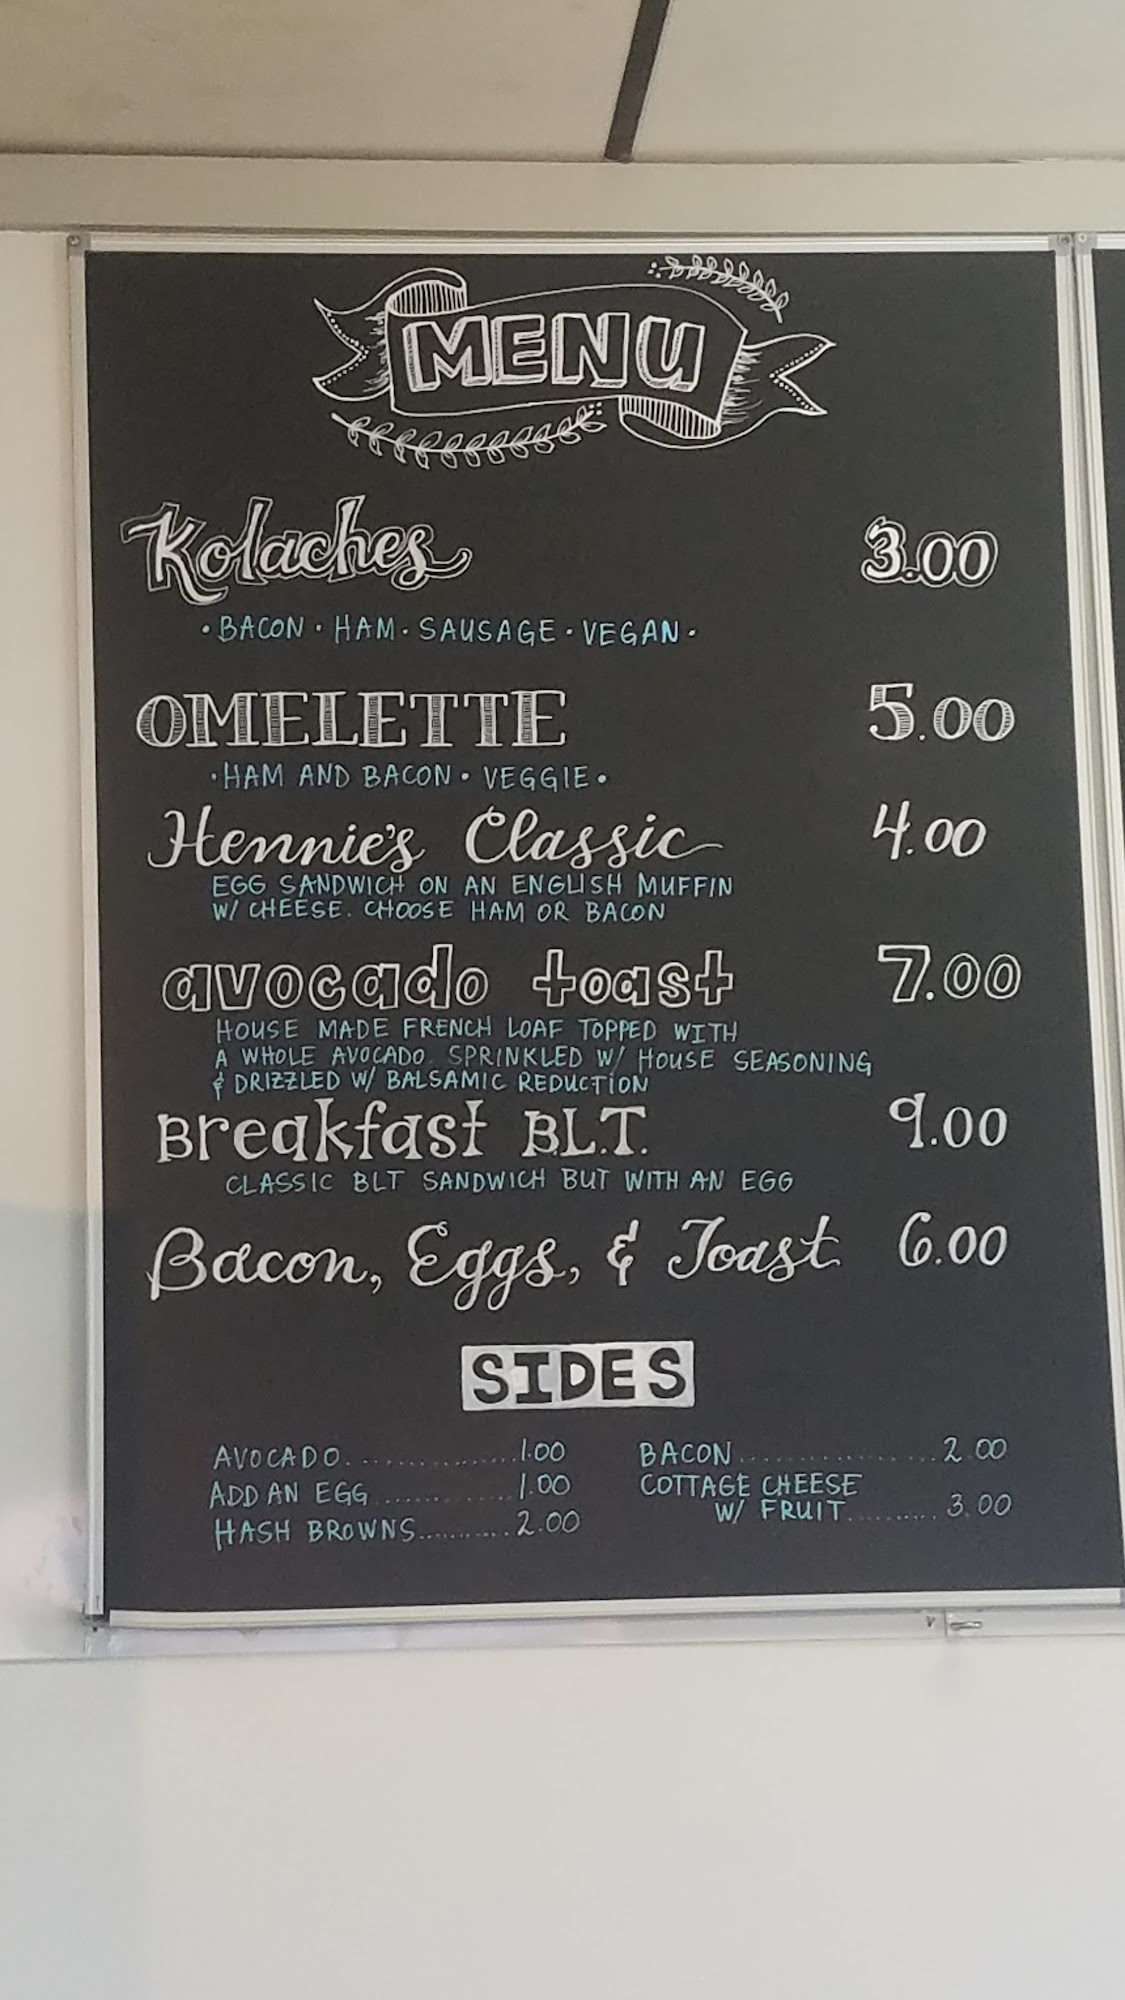 MENU
Kolaches 3.00
• BACON • HAM • SAUSAGE • VEGAN •
OMELETTE 5.00
• HAM AND BACON • VEGGIE •
Hennie's Classic 4.00
EGG SANDWICH ON AN ENGLISH MUFFIN
W/ CHEESE. CHOOSE HAM OR BACON
avocado toast 7.00
HOUSE MADE FRENCH LOAF TOPPED WITH
A WHOLE AVOCADO. SPRINKLED W/ HOUSE SEASONING
& DRIZZLED W/ BALSAMIC REDUCTION
Breakfast B.L.T. 9.00
CLASSIC BLT SANDWICH BUT WITH AN EGG
Bacon, Eggs, & Toast 6.00
SIDES
AVOCADO.................1.00
ADD AN EGG.............1.00
HASH BROWNS..........2.00
BACON...................2.00
COTTAGE CHEESE
W/ FRUIT..........3.00